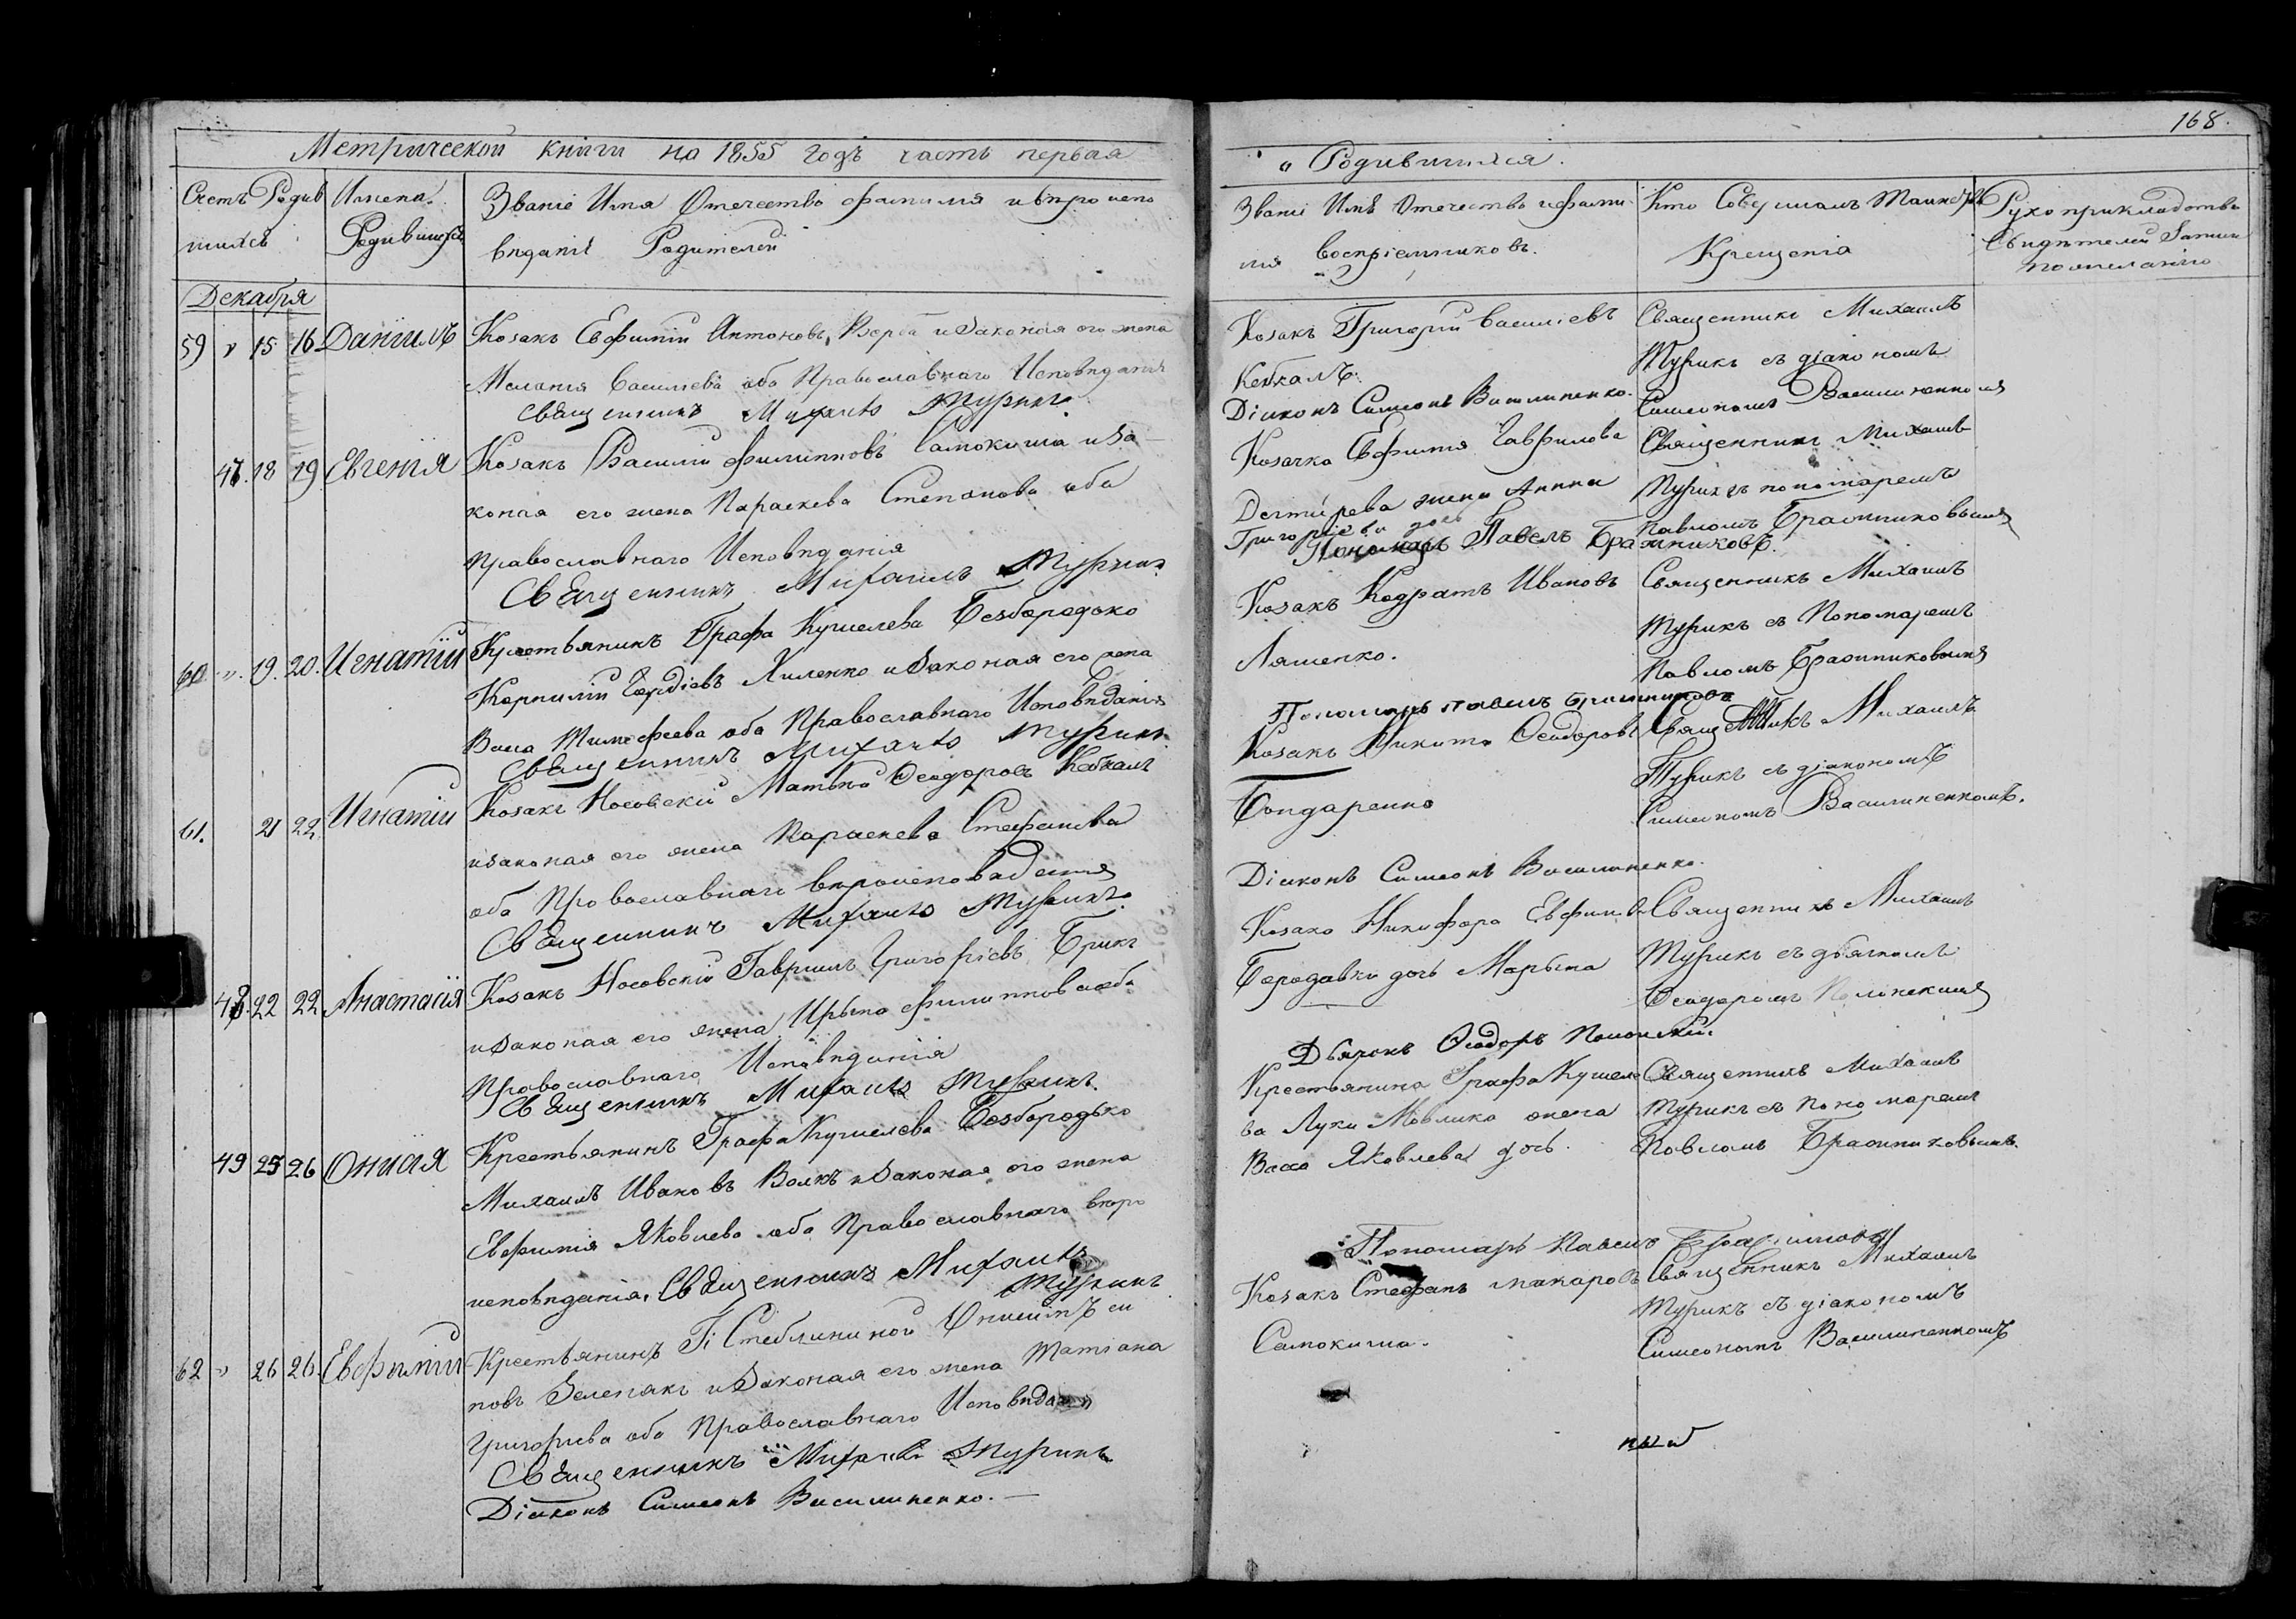 168.
Метрической книги на 1855 годъ часть первая
о Родившихся.
Счетъ Родив
шихся
Имена
Родившихся
Званіе Имя Отечество фамилія и вѣроиспо
вѣданіе Родителей
Званіе Имя Отечество и фами-
лія воспріемниковъ.
Кто Совершалъ Таинство
Крещенія
Рукоприкладство
Свидѣтелей
по желанію
Декабря
59 " 15 16 Даніилъ
Козакъ Евфимій Антоновъ и законая его жена
Меланія Васильева оба Православнаго Исповѣданія
Священникъ Михаилъ Турикъ
Козакъ Григорій Василіевъ
Кебкалъ.
Діаконъ Симеонъ Василиненко.
Священникъ Михаилъ
Турикъ съ діакономъ
Симеономъ Василиненкомъ
47. 18 19 Евгенія
Козакъ Василій Филипповъ Самокиша и за-
коная его жена Параскева Степанова оба
Православнаго Исповѣданія
Священникъ Михаилъ Турикъ
Козачка Евфимія Гаврилова
Дегтярева жена Анна
Григоріева дочь
Пономарь Павелъ Бражниковъ.
Священникъ Михаилъ
Турикъ съ пономаремъ
Павломъ Бражниковымъ
60. ". 19. 20. Игнатій
Крестьянинъ Графа Кушелева Безбородько
Корнилій Гордіевъ Хиленко и законая его жена
Васа Тимофеева оба Православнаго Исповѣданія
Священникъ Михаилъ Турикъ
Козакъ Кодратъ Ивановъ
Ляшенко.
Пономарь Павелъ Бражниковъ
Священникъ Михаилъ
Турикъ съ Пономаремъ
Павломъ Бражниковымъ
61. 21 22 Игнатій
Козакъ Носовскій Матвѣй Феодоровъ Кебкалъ
и законая его жена Параскева Стефанова
оба Православнаго вѣроисповѣданія
Священникъ Михаилъ Турикъ
Козакъ Никита Феодоровъ
Бондаренко
Діаконъ Симеонъ Василиненко.
Священникъ Михаилъ
Турикъ съ діакономъ
Симеономъ Василиненкомъ.
48. 22 22 Анастасія
Козакъ Носовскій Гавриилъ Григоріевъ Брикъ
и законая его жена Ирына Филиппова оба
Православнаго Исповѣданія
Священникъ Михаилъ Турикъ
Козака Никифора Евфимова
Бородавки дочь Марѣна
Дьячокъ Феодоръ Полонскій
Священникъ Михаилъ
Турикъ съ дьячкомъ
Феодоромъ Полонскимъ
49 25 26 Онисія
Крестьянинъ Графа Кушелева Безбородько
Михаилъ Ивановъ Волкъ и законая его жена
Евфимія Яковлева оба Православнаго вѣро
исповѣданія. Священникъ Михаилъ
Турикъ
Крестьянина Графа Кушеле
ва Луки Мовлика жена
Васса Яковлева дочь.
Пономарь Павелъ Бражниковъ
Священникъ Михаилъ
Турикъ съ пономаремъ
Павломъ Бражниковымъ.
62 " 26 26 Евфимій
Крестьянинъ Гі Стеблининой Онисимъ си
новъ Зеленякъ и законая его жена Татіана
Григорьева оба Православнаго Исповѣданія
Священникъ Михаилъ Турикъ
Діаконъ Симеонъ Василиненко.—
Козакъ Стефанъ Макаровъ
Самокиша.
Священникъ Михаилъ
Турикъ съ діакономъ
Симеономъ Василиненкомъ